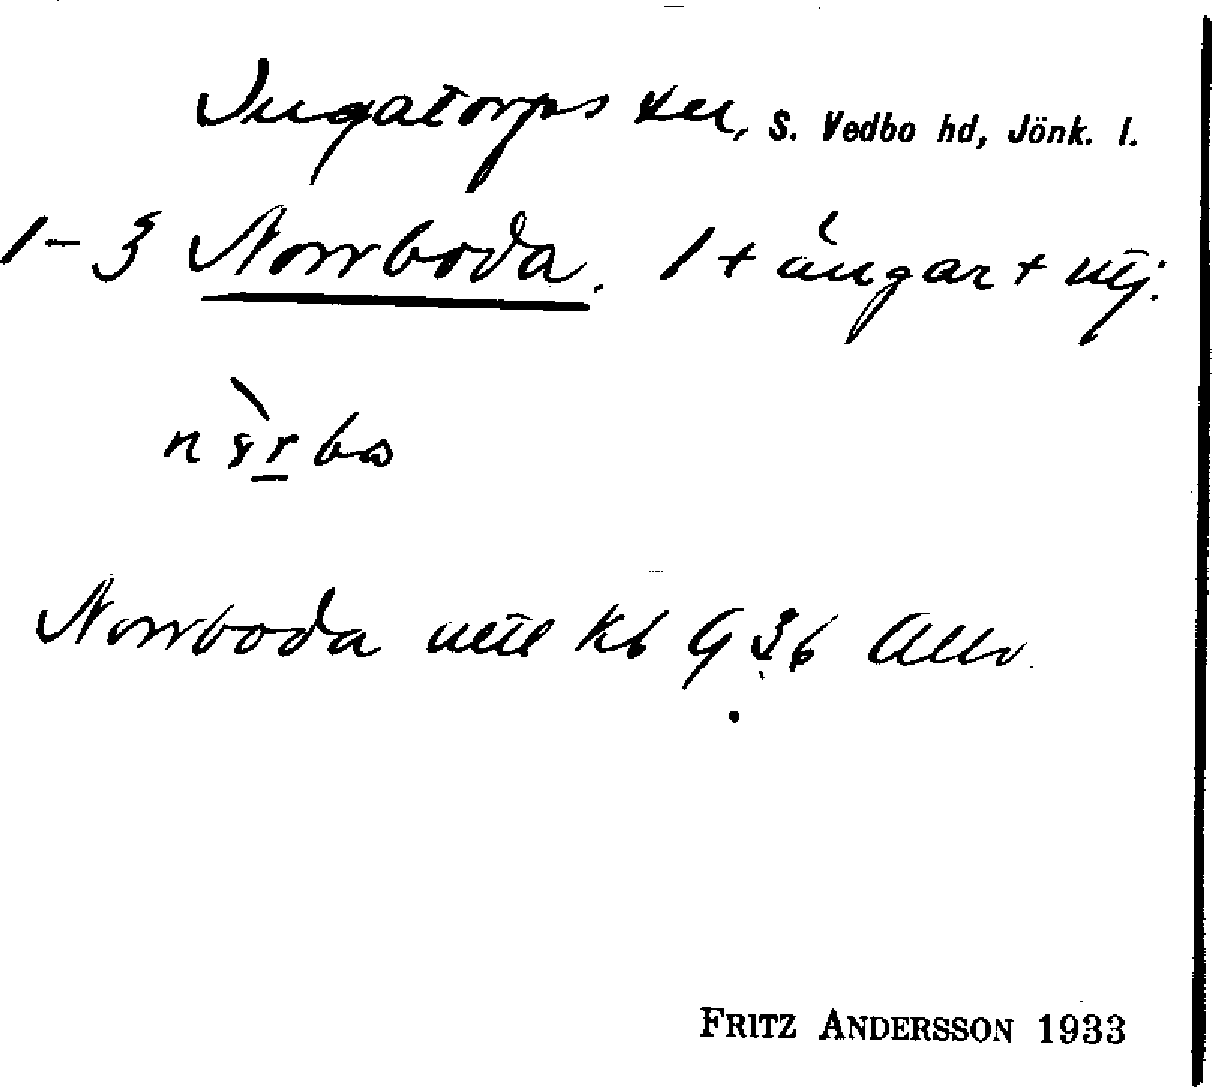 Ingatorps sn, S. Vedbo hd, Jönk. l.
1-3 Norrboda. 1 + ängar + utj.
Norrboda utu kb G 36 Allm
FRITZ ANDERSSON 1933